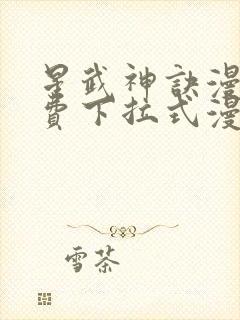 星武神訣漫
費下拉式漫
雪茶